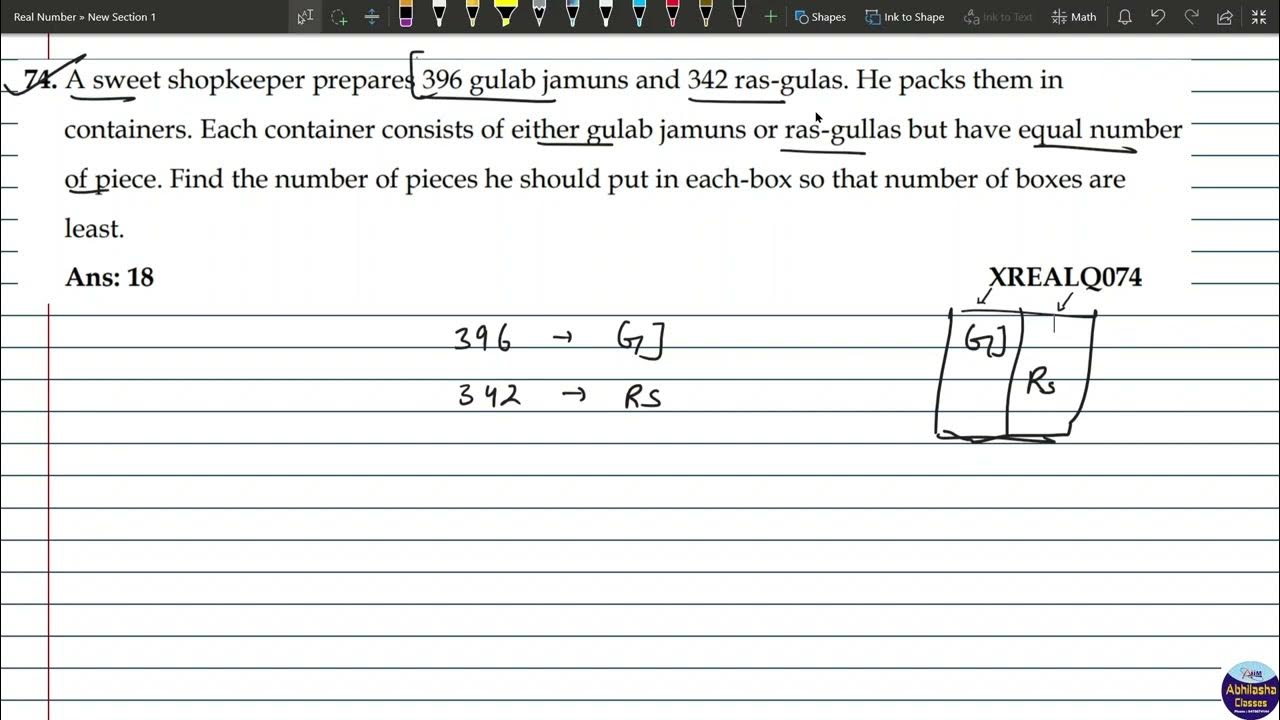 Real Number » New Section 1
Shapes
Ink to Shape
Ink to Text
Math
74. A sweet shopkeeper prepares 396 gulab jamuns and 342 ras-gulas. He packs them in
containers. Each container consists of either gulab jamuns or ras-gullas but have equal number
of piece. Find the number of pieces he should put in each-box so that number of boxes are
least.
Ans: 18
XREALQ074
396 → GJ
342 → RS
GJ
Rs
Abhilasha
Classes